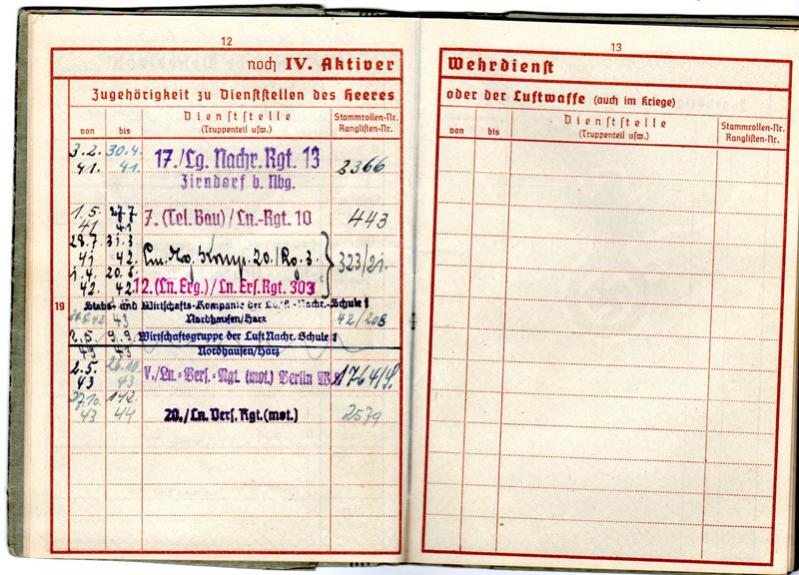 12
noch IV. Aktiver
Zugehörigkeit zu Dienststellen des Heeres
von bis Dienststelle (Truppenteil usw.) Stammrollen-Nr. Ranglisten-Nr.
3.2. 41. 30.4. 41. 17./Lg. Nachr. Rgt. 13 2366
Zirndorf b. Nbg.
1.5. 41 27.7. 41 7. (Tel. Bau)/Ln.-Rgt. 10 443
28.7. 41 31.3. 42. 20./ 3. 323/21.
1.4. 42. 20.5. 42 12. (Ln. Erg.)/Ln. Ers. Rgt. 303
19
Stabs- und Wirtschafts-Kompanie der Luft-Nachr.-Schule 1
Nordhausen/Harz 42/208
43
2.5. 43 9.9. 43 Wirtschaftsgruppe der Luft Nachr. Schule 1
Nordhausen/Harz
2.5. 43 43 V./Ln.-Vers.-Rgt. (mot) Berlin 1764/
27.10. 43 44 20./Ln. Vers. Rgt. (mot.) 2579
13
Wehrdienst
oder der Luftwaffe (auch im Kriege)
von bis Dienststelle (Truppenteil usw.) Stammrollen-Nr. Ranglisten-Nr.